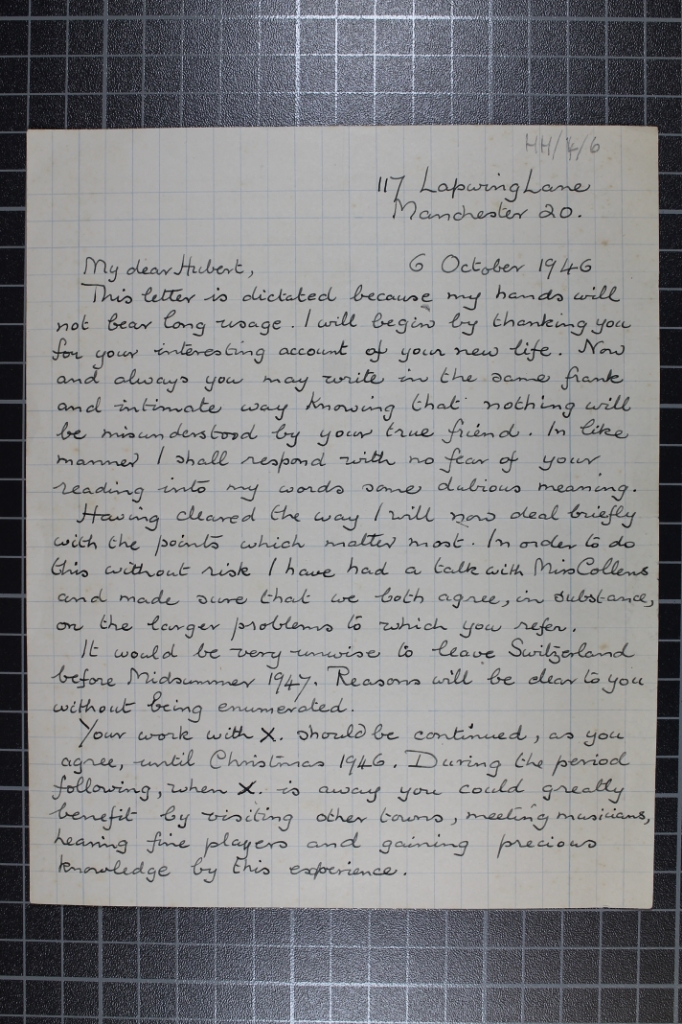 HH/4/6
117 Lapwing Lane
Manchester 20.
My dear Hubert, 6 October 1946
This letter is dictated because my hands will
not bear long usage. I will begin by thanking you
for your interesting account of your new life. Now
and always you may write in the same frank
and intimate way knowing that nothing will
be misunderstood by your true friend. In like
manner I shall respond with no fear of your
reading into my words some dubious meaning.
Having cleared the way I will now deal briefly
with the points which matter most. In order to do
this without risk I have had a talk with Miss Collens
and made sure that we both agree, in substance,
on the larger problems to which you refer.
It would be very unwise to leave Switzerland
before Midsummer 1947. Reasons will be clear to you
without being enumerated.
Your work with X. should be continued, as you
agree, until Christmas 1946. During the period
following, when X. is away you could greatly
benefit by visiting other towns, meeting musicians,
hearing fine players and gaining precious
knowledge by this experience.